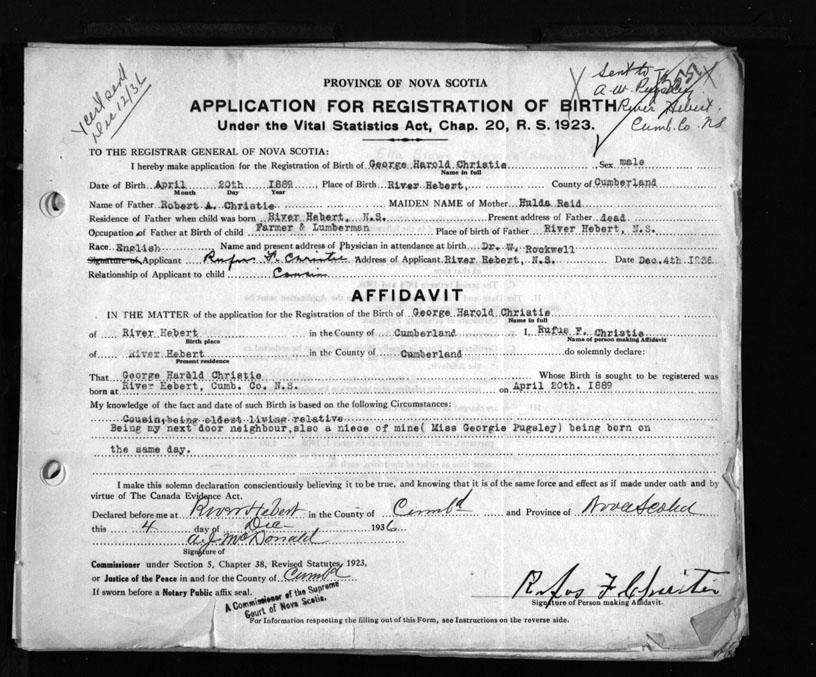 Cert sent
Dec 12/36
Sent to
A. W. Pugsley
River Hebert.
Cumb. Co. NS
PROVINCE OF NOVA SCOTIA
APPLICATION FOR REGISTRATION OF BIRTH
Under the Vital Statistics Act, Chap. 20, R. S. 1923.
TO THE REGISTRAR GENERAL OF NOVA SCOTIA:
I hereby make application for the Registration of Birth of George Harold Christie, Sex male
Name in full
Date of Birth April 20th 1889 Place of Birth River Hebert, County of Cumberland
Month Day Year
Name of Father Robert A. Christie MAIDEN NAME of Mother Hulda Reid
Residence of Father when child was born River Hebert, N.S. Present address of Father dead
Occupation of Father at Birth of child Farmer & Lumberman Place of birth of Father River Hebert, N.S.
Race English Name and present address of Physician in attendance at birth Dr. W. Rockwell
Signature of Applicant Rufus F. Christie Address of Applicant River Hebert, N.S. Date Dec. 4th. 1936
Relationship of Applicant to child Cousin
AFFIDAVIT
IN THE MATTER of the application for the Registration of the Birth of George Harold Christie
Name in full
of River Hebert in the County of Cumberland I, Rufus F. Christie
Birth place Name of person making Affidavit
of River Hebert in the County of Cumberland do solemnly declare:
Present residence
That George Harold Christie Whose Birth is sought to be registered was
born at River Hebert, Cumb. Co. N.S. on April 20th. 1889
My knowledge of the fact and date of such Birth is based on the following Circumstances:
Cousin, being oldest living relative
Being my next door neighbour, also a niece of mine( Miss Georgie Pugsley) being born on
the same day.
I make this solemn declaration conscientiously believing it to be true, and knowing that it is of the same force and effect as if made under oath and by
virtue of The Canada Evidence Act.
Declared before me at River Hebert in the County of Cumb'd and Province of Nova Scotia
this 4 day of Dec 1936
A. J. McDonald
Signature of
Commissioner under Section 5, Chapter 38, Revised Statutes, 1923,
or Justice of the Peace in and for the County of Cumb'd
If sworn before a Notary Public affix seal.
A Commissioner of the Supreme
Court of Nova Scotia.
Rufus F Christie
Signature of Person making Affidavit.
For Information respecting the filling out of this Form, see Instructions on the reverse side.